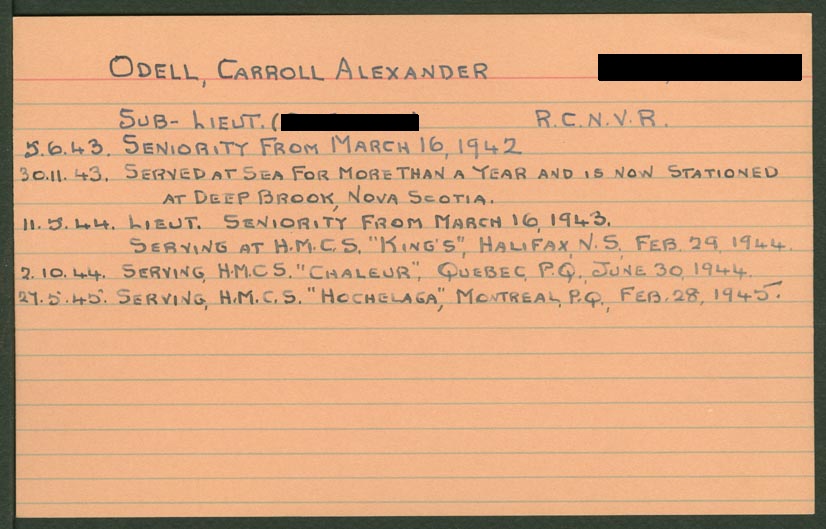 ODELL, CARROLL ALEXANDER
SUB-LIEUT. ( ) R.C.N.V.R.
5.6.43. SENIORITY FROM MARCH 16, 1942
30.11.43. SERVED AT SEA FOR MORE THAN A YEAR AND IS NOW STATIONED
AT DEEP BROOK, NOVA SCOTIA.
11.5.44. LIEUT. SENIORITY FROM MARCH 16, 1943.
SERVING AT H.M.C.S. "KING'S", HALIFAX, N.S., FEB. 29, 1944.
2.10.44. SERVING, H.M.C.S. "CHALEUR", QUEBEC, P.Q., JUNE 30, 1944.
27.5.45. SERVING, H.M.C.S. "HOCHELAGA", MONTREAL, P.Q., FEB. 28, 1945.